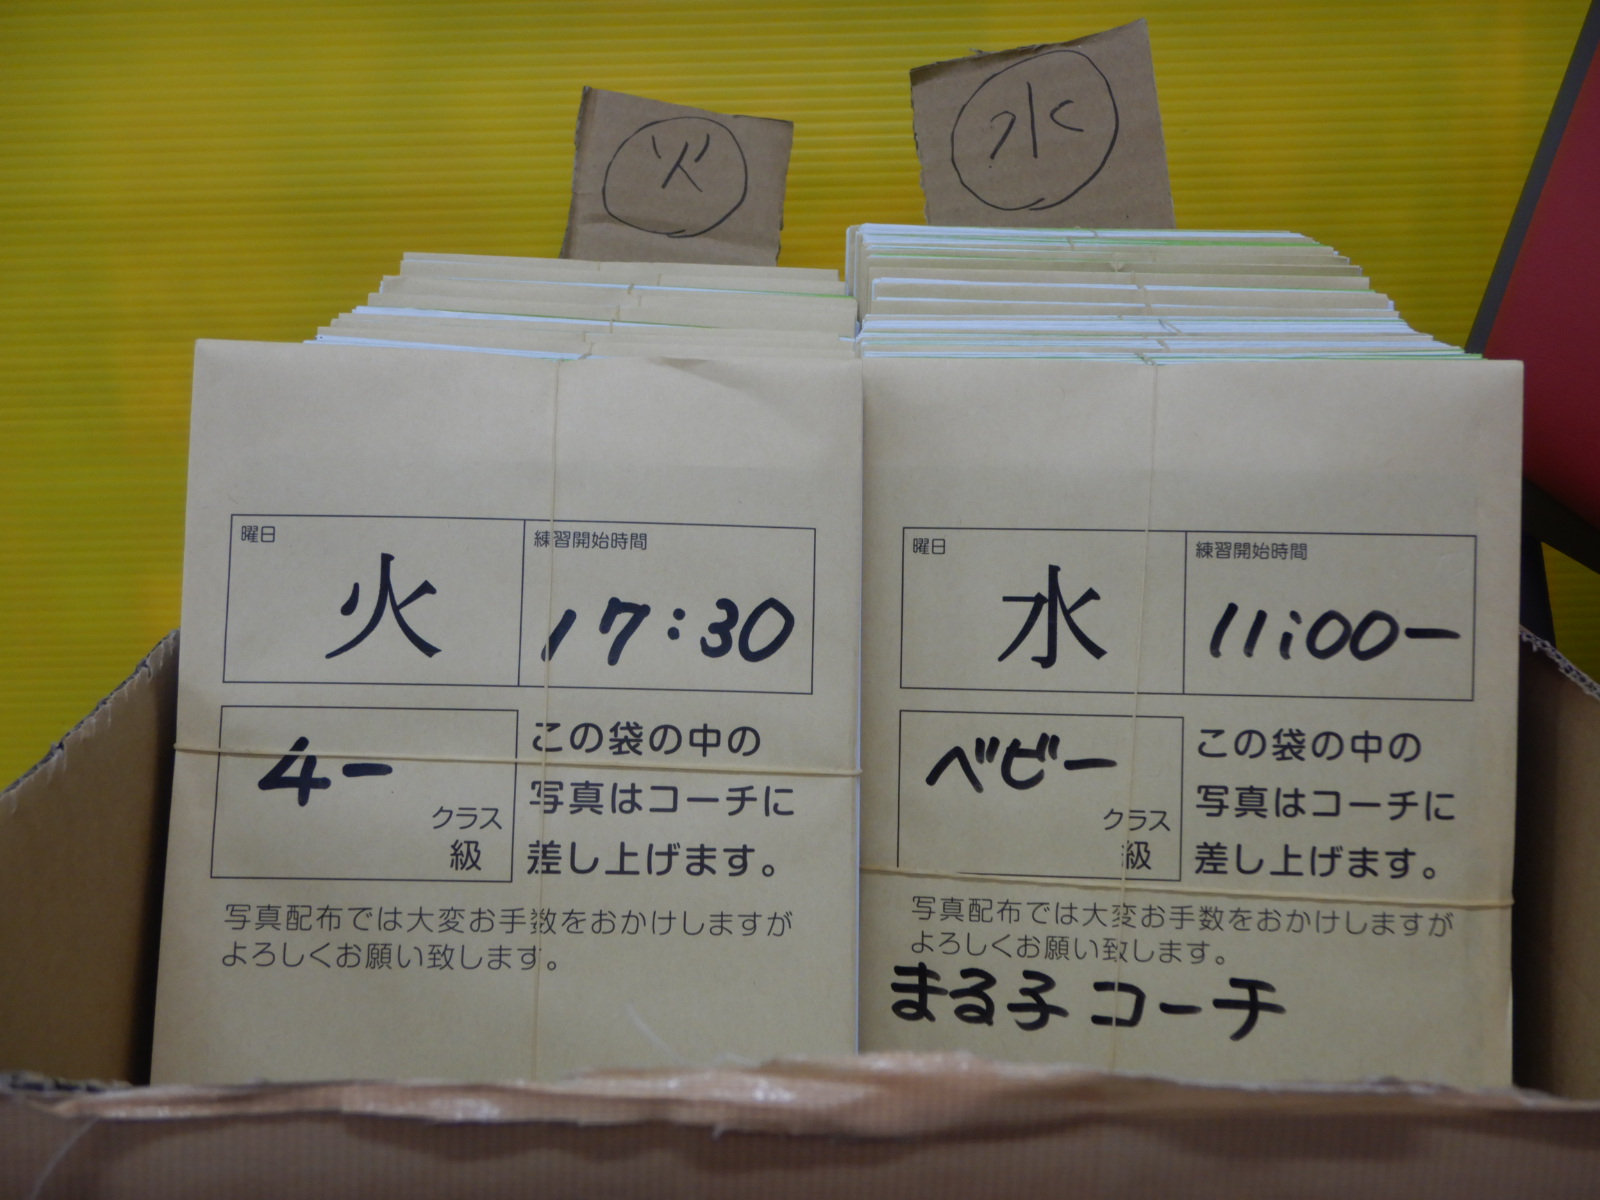 火
水
曜日
火
練習開始時間
17:30
4ー
クラス
級
この袋の中の
写真はコーチに
差し上げます。
写真配布では大変お手数をおかけしますが
よろしくお願い致します。
曜日
水
練習開始時間
11:00ー
ベビー
クラス
級
この袋の中の
写真はコーチに
差し上げます。
写真配布では大変お手数をおかけしますが
よろしくお願い致します。
まる子コーチ